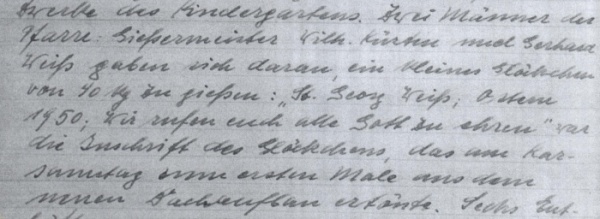 Zwecke des Kindergartens. Zwei Männer der
Pfarre: Gießermeister Wilh. Kürten und Gerhard
Weiß gaben sich daran, ein kleines Glöckchen
von 40 kg zu gießen: „St. Georg Weiß; Ostern
1950; Wir rufen euch alle Gott zu ehren" war
die Inschrift des Glöckchens, das am Kar-
samstag zum ersten Male aus dem
neuen Dachaufbau ertönte. Sechs